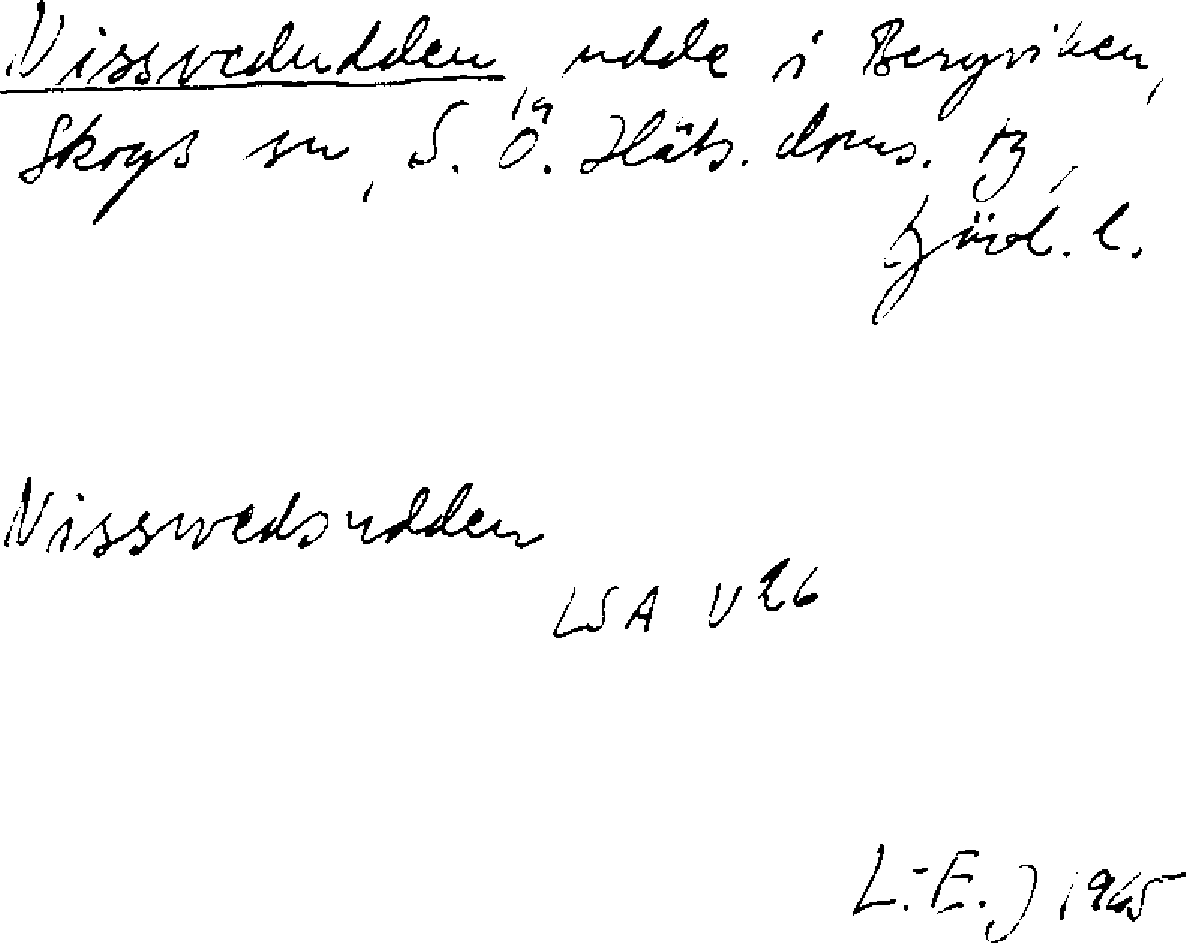 Nissvedudden, udde i Bergviken,
Skogs sn, S. Ö. Häls. doms. tg,
Gävl. l.
Nisswedsudden
LSA V 26
L.-E. J 1965